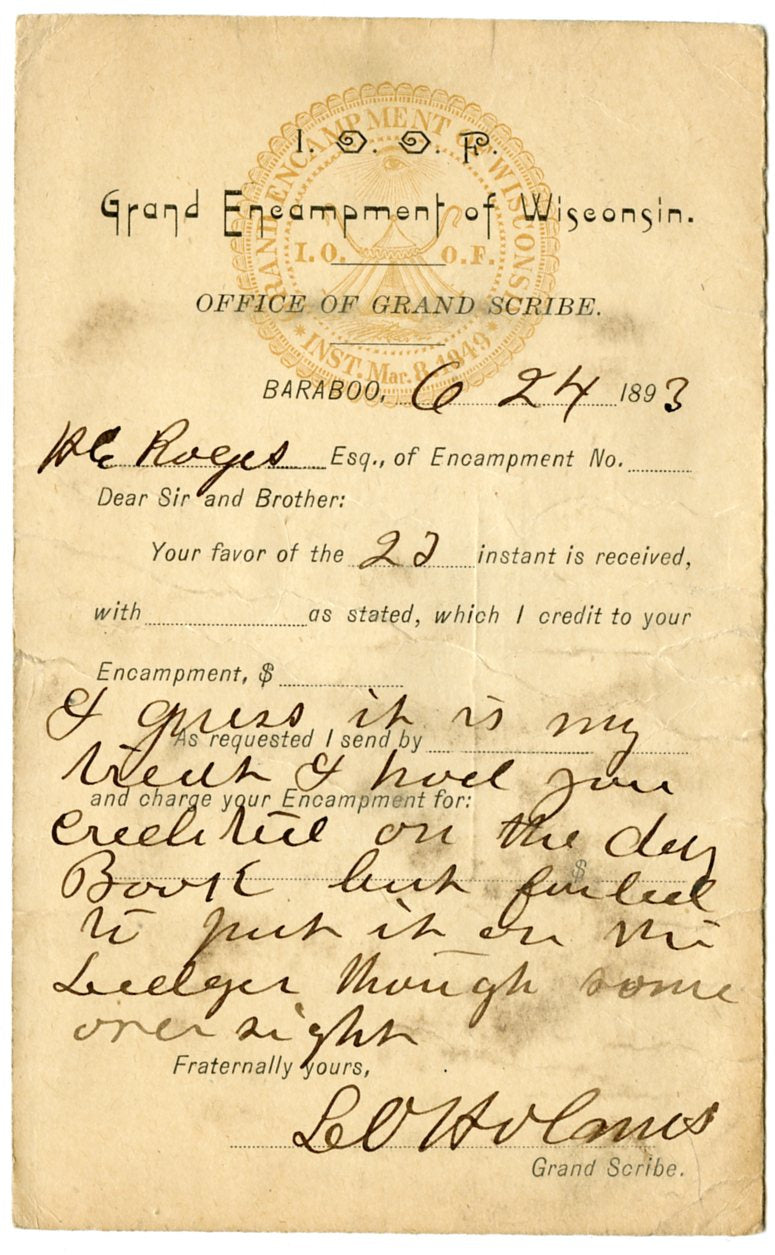 GRAND ENCAMPMENT OF WISCONSIN
I. O. O. F.
Grand Encampment of Wisconsin.
I. O. O. F.
OFFICE OF GRAND SCRIBE.
INST. Mar. 8. 1849
BARABOO, 6 24 1893
Esq., of Encampment No.
Dear Sir and Brother:
Your favor of the 23 instant is received,
with as stated, which I credit to your
Encampment, $
I guess it is my
As requested I send by
treat I had you
and charge your Encampment for:
credited on the day
$
Book but failed
to put it on the
Ledger though some
over sight
Fraternally yours,
L O Holmes
Grand Scribe.